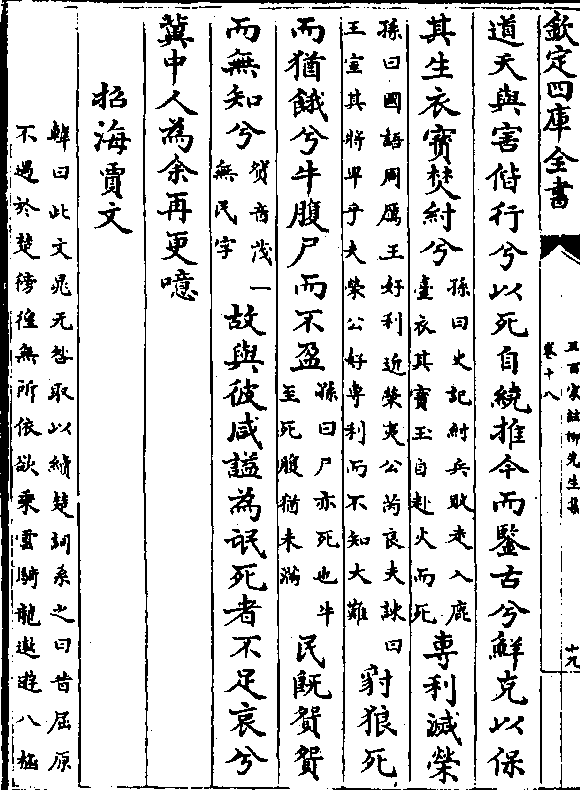 欽定四庫全書
五百家註柳先生集
卷十八
十九
道天與害偕行兮以死自繞推今而鑒古兮鮮克以保
其生衣寳焚紂兮
孫曰史記紂兵敗走入鹿
臺衣其寳玉自赴火而死
專利滅榮
孫曰國語周厲王好利近榮夷公芮良夫諫曰
王室其將卑乎夫榮公好專利而不知大難
豺狼死
而猶餓兮牛腹尸而不盈
孫曰尸亦死也牛
至死腹猶未滿
民既賀賀
而無知兮
賀音茂一
無民字
故與彼咸謚為氓死者不足哀兮
冀中人為余再更噫
招海賈文
韓曰此文晁无咎取以續楚詞系之曰昔屈原
不遇於楚傍徨無所依欲乘雲騎龍遨遊八極